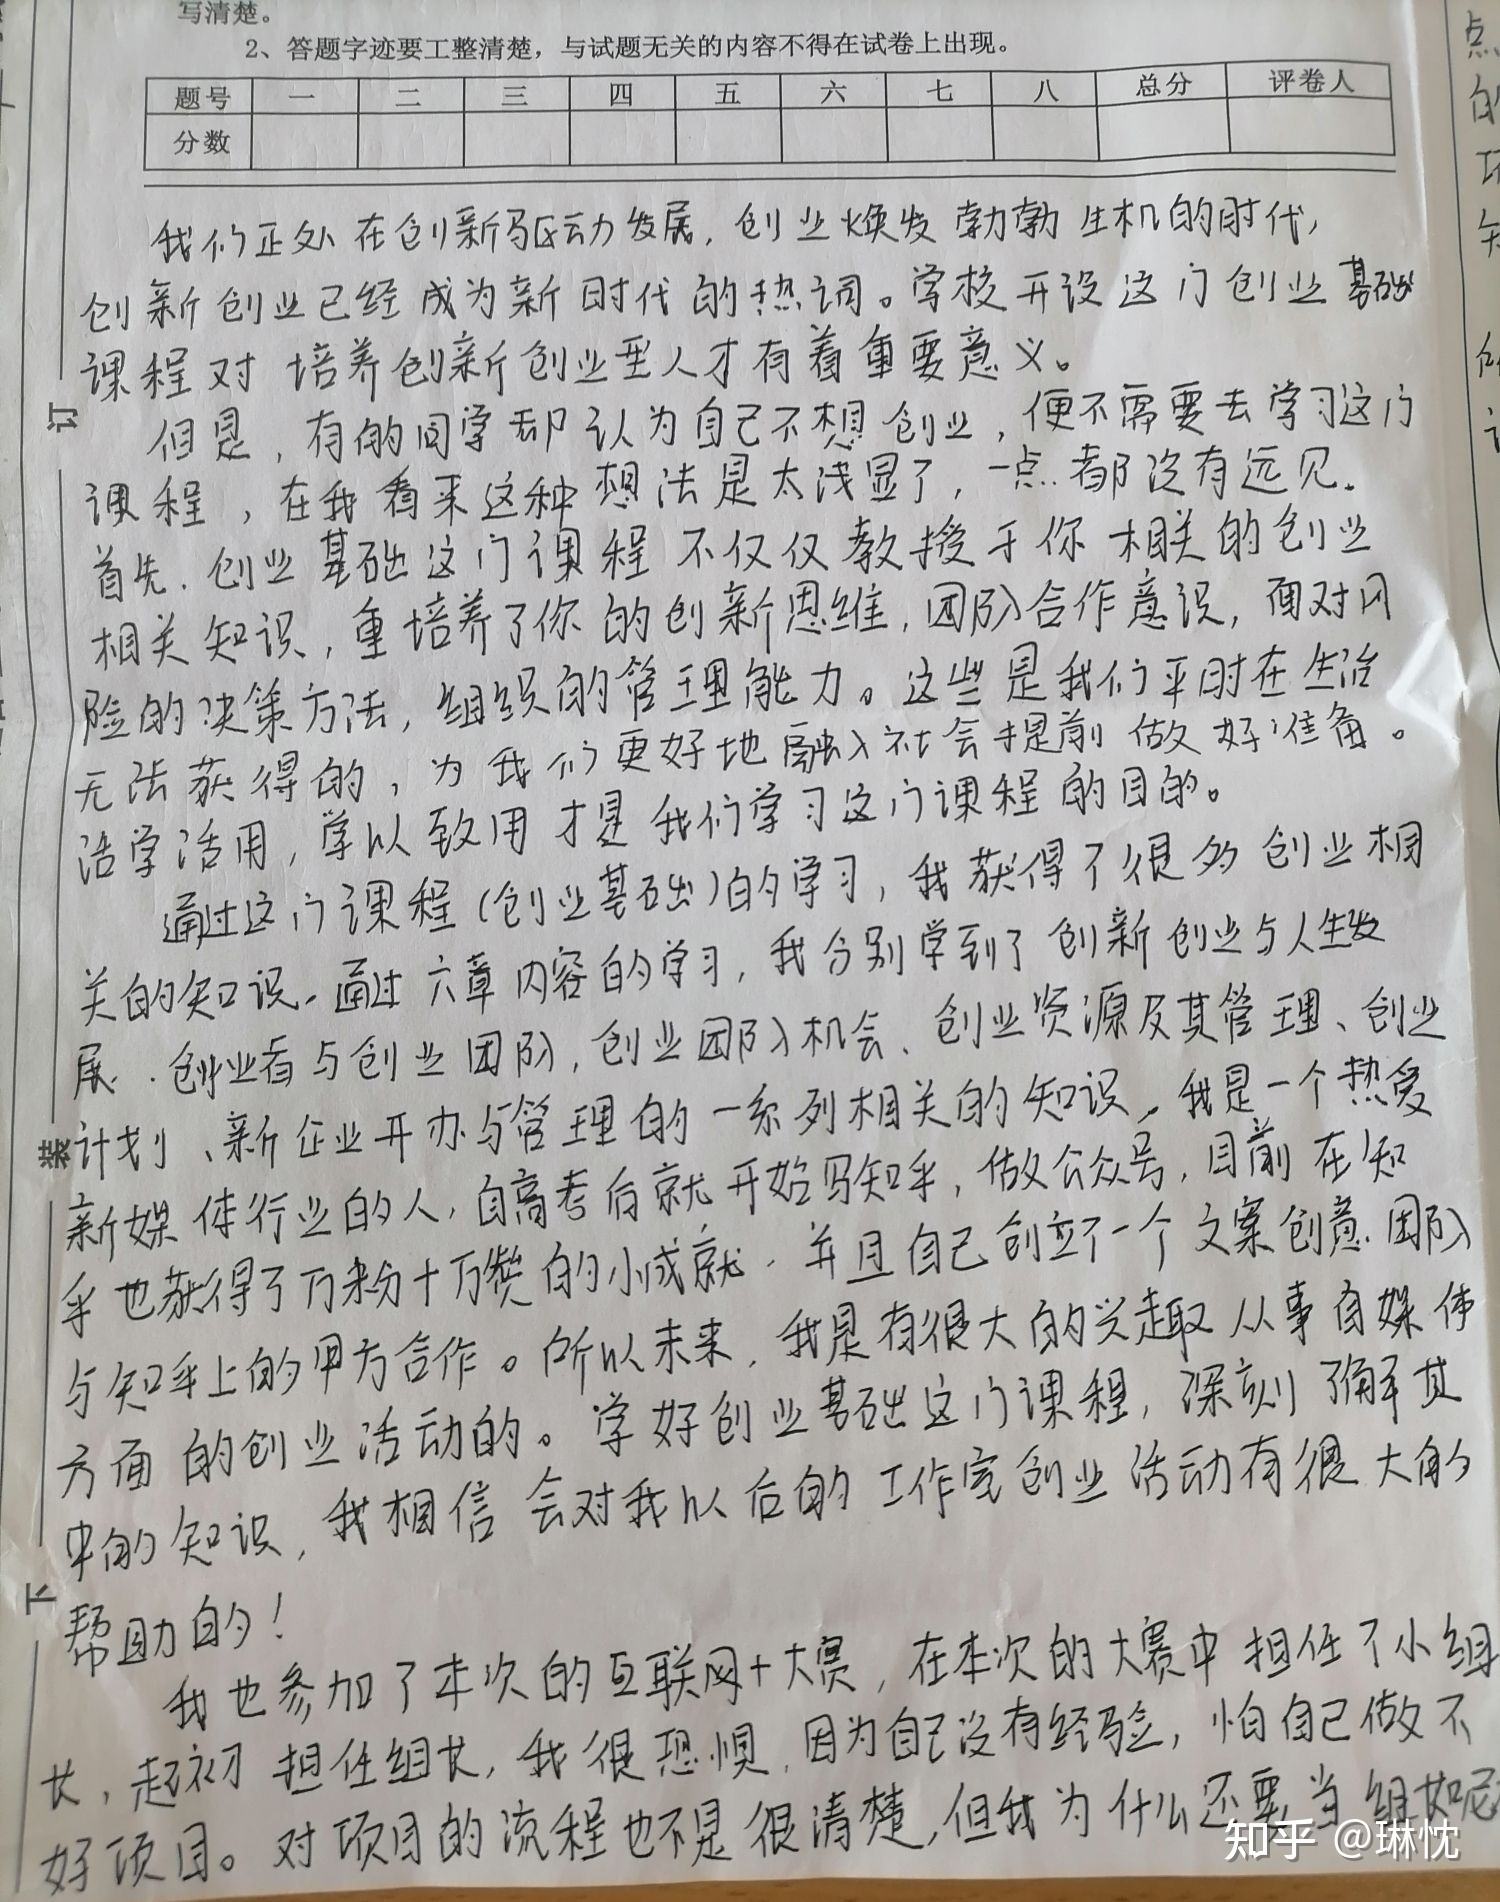 写清楚。
2、答题字迹要工整清楚，与试题无关的内容不得在试卷上出现。
题号 一 二 三 四 五 六 七 八 总分 评卷人
分数
我们正处在创新驱动力发展，创业焕发勃勃生机的时代，
创新创业已经成为新时代的热词。学校开设这门创业基础
课程对培养创新创业型人才有着重要意义。
但是，有的同学却认为自己不想创业，便不需要去学习这门
课程，在我看来这种想法是太浅显了，一点都没有远见。
首先，创业基础这门课程不仅仅教授于你相关的创业
相关知识，重培养了你的创新思维，团队合作意识，面对风
险的决策方法，组织的管理能力。这些是我们平时在生活
无法获得的，为我们更好地融入社会提前做好准备。
活学活用，学以致用才是我们学习这门课程的目的。
通过这门课程（创业基础）的学习，我获得了很多创业相
关的知识。通过六章内容的学习，我分别学到了创新创业与人生发
展、创业者与创业团队，创业团队机会、创业资源及其管理、创业
计划、新企业开办与管理的一系列相关的知识，我是一个热爱
新媒体行业的人，自高考后就开始写知乎，做公众号，目前在知
乎也获得了万粉十万赞的小成就，并且自己创立了一个文案创意团队
与知乎上的甲方合作。所以未来，我是有很大的兴趣从事自媒体
方面的创业活动的。学好创业基础这门课程，深刻了解其
中的知识，我相信会对我以后的工作室创业活动有很大的
帮助的！
我也参加了本次的互联网+大赛，在本次的大赛中担任了小组
长，起初担任组长，我很恐惧，因为自己没有经验，怕自己做不
好项目。对项目的流程也不是很清楚，但我为什么还要当组
订
装
下
知乎 @琳忱